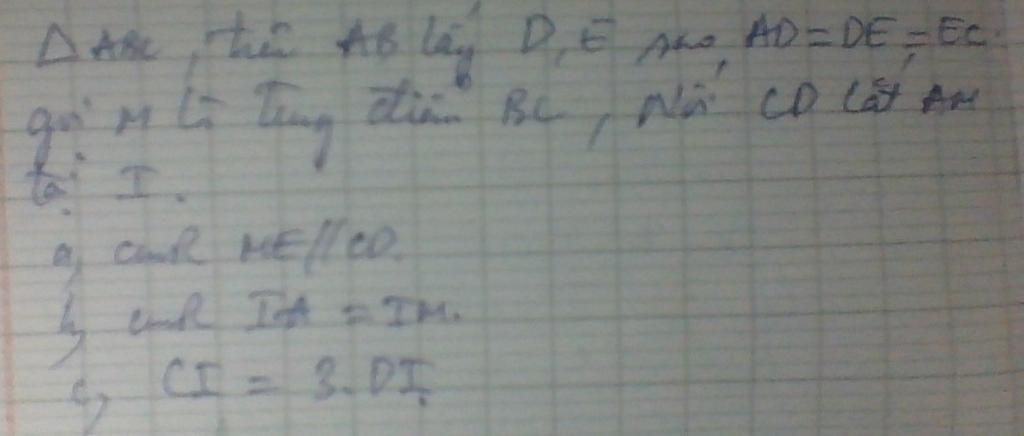 Δ ABC, trên AB lấy D, E sao AD = DE = EC.
gọi M là trung điểm BC, Nối CD cắt AM
tại I.
a, CmR ME // CD.
b, CmR IA = IM.
c, CI = 3.DI.